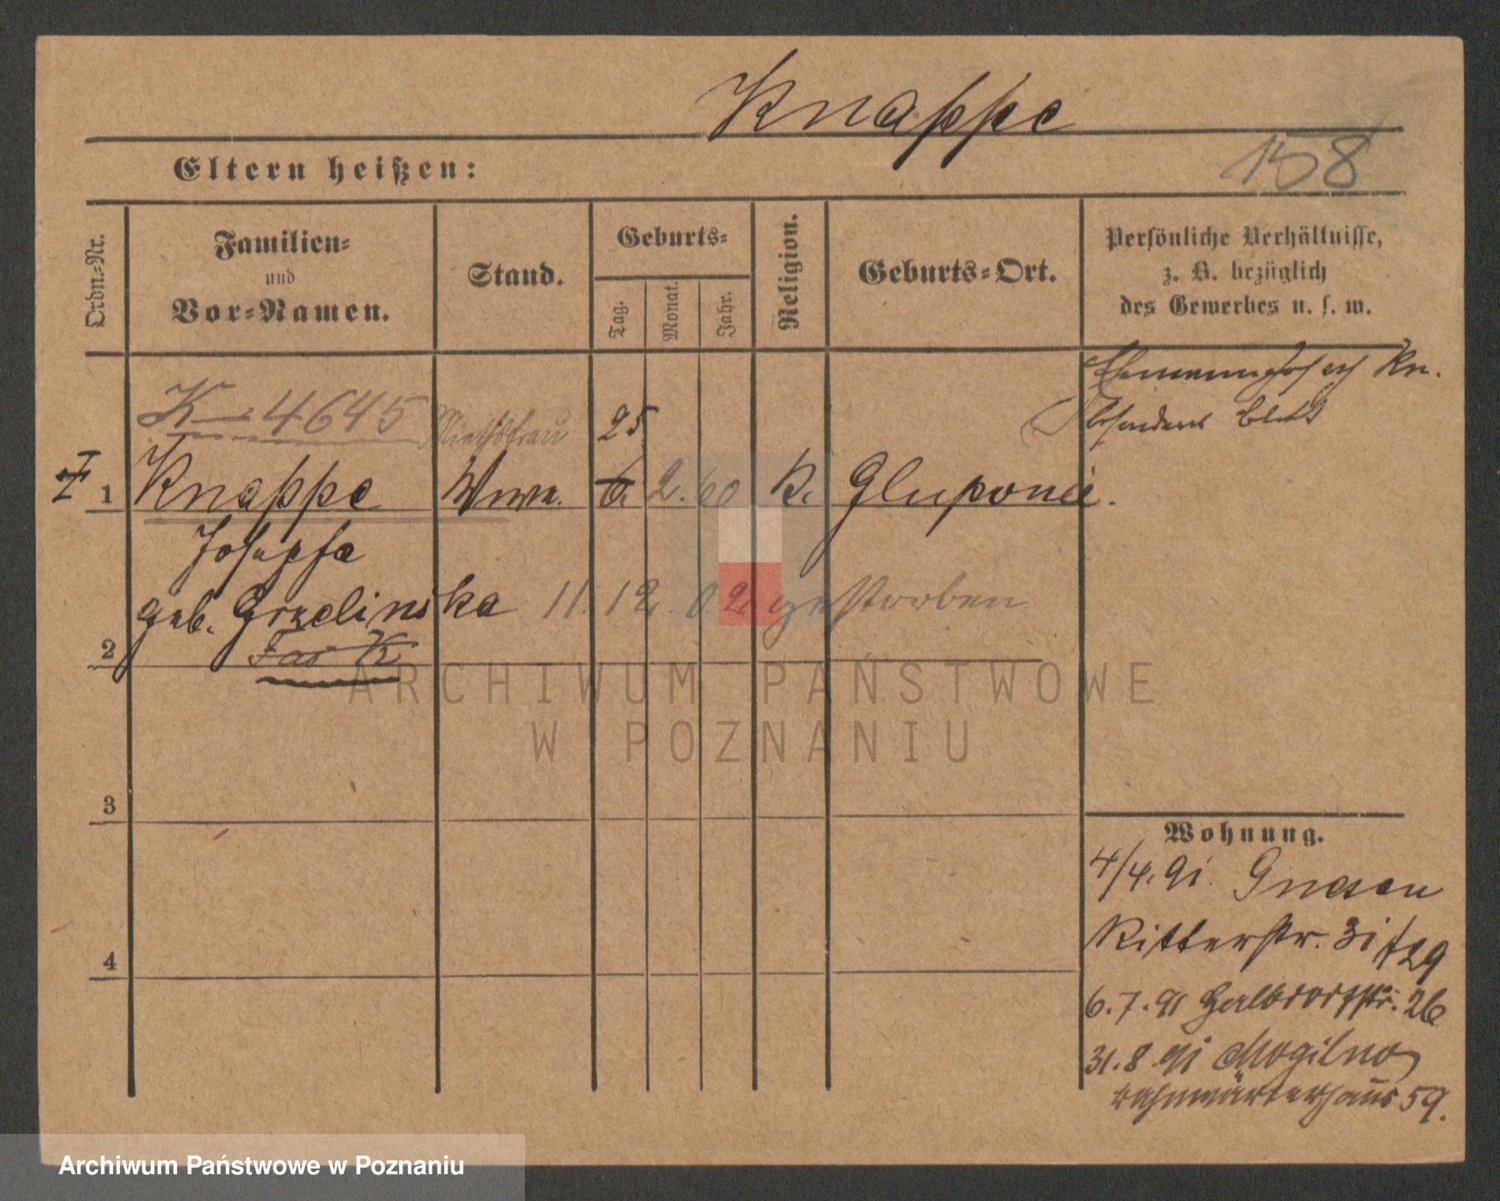 Knappe
158
Eltern heißen:
Ordn.-Nr.
Familien-
und
Vor-Namen.
Stand.
Geburts-
Tag.
Monat.
Jahr.
Religion.
Geburts-Ort.
Persönliche Verhältnisse,
z. B. bezüglich
des Gewerbes u. s. w.
Ehemann Josef Kn.
besonderes Blatt
K 4645
Miethsfrau
25
1 Knappe Wwe. 6. 2. 60 K. Gluponie.
Josepha
geb. Grzelinska 11. 12. 02 gestorben
2
3
4
Wohnung.
4/4. 91. Gnesen
Ritterstr. 31/29
6. 7. 91 Halbdorfstr. 26
31. 8. 91 Mogilno
Bahnwärterhaus 59.
ARCHIWUM PAŃSTWOWE
W POZNANIU
Archiwum Państwowe w Poznaniu